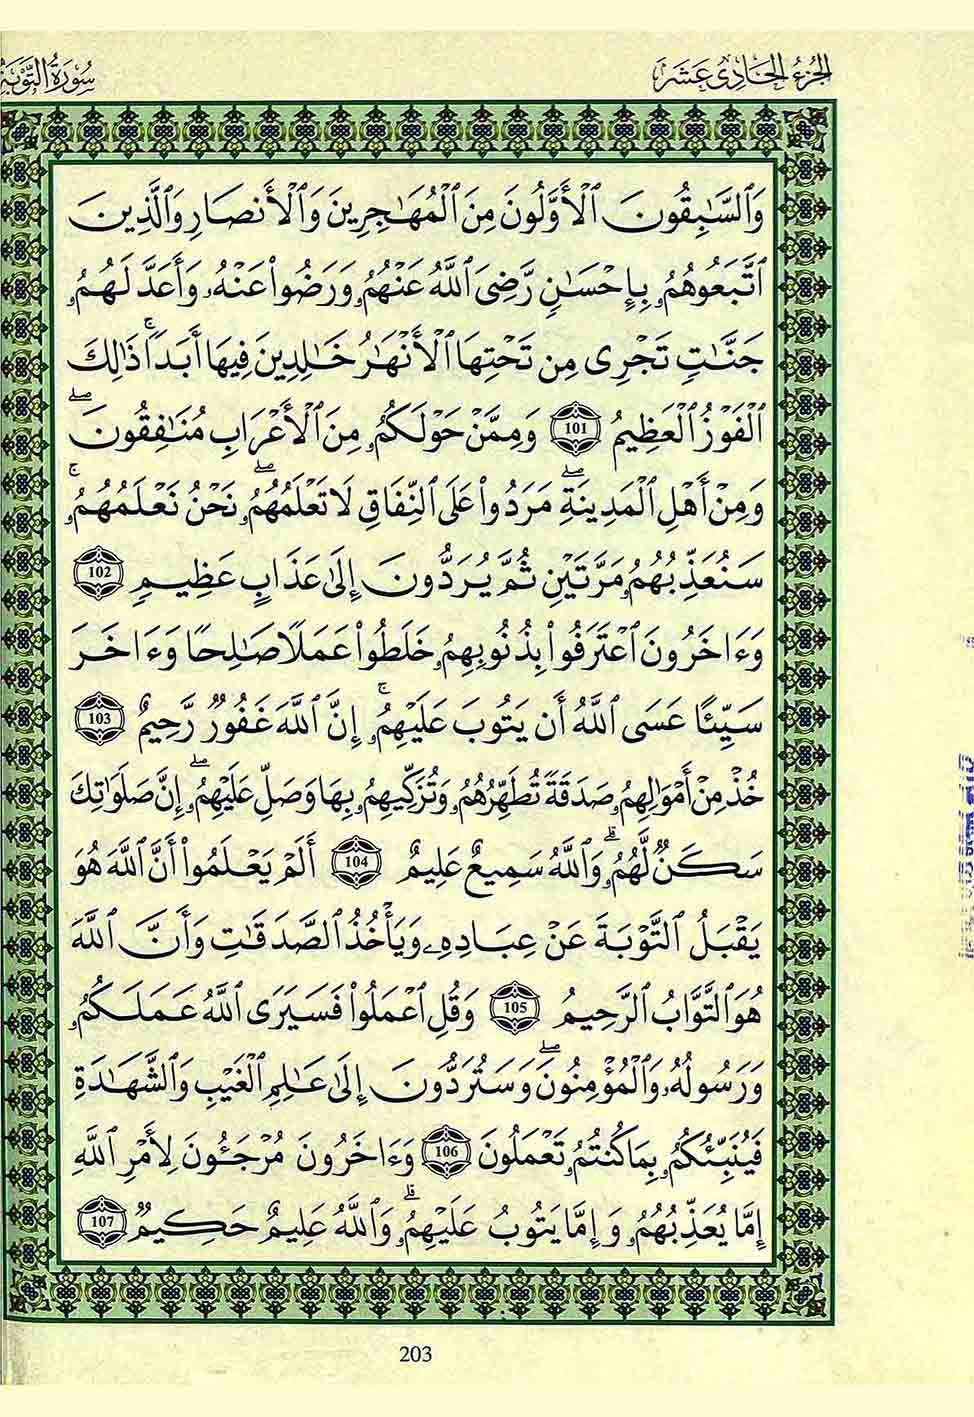 الجزء الحادي عشر
سورة التوبة
وَٱلسَّٰبِقُونَ ٱلْأَوَّلُونَ مِنَ ٱلْمُهَٰجِرِينَ وَٱلْأَنصَارِ وَٱلَّذِينَ
ٱتَّبَعُوهُمُۥ بِإِحْسَٰنٍ رَّضِىَ ٱللَّهُ عَنْهُمُۥ وَرَضُوا۟ عَنْهُۥ وَأَعَدَّ لَهُمُۥ
جَنَّٰتٍ تَجْرِى مِن تَحْتِهَا ٱلْأَنْهَٰرُ خَٰلِدِينَ فِيهَا أَبَدًا ۚ ذَٰلِكَ
ٱلْفَوْزُ ٱلْعَظِيمُ 101 وَمِمَّنْ حَوْلَكُمُۥ مِنَ ٱلْأَعْرَابِ مُنَٰفِقُونَ ۖ
وَمِنْ أَهْلِ ٱلْمَدِينَةِ ۖ مَرَدُوا۟ عَلَى ٱلنِّفَاقِ لَا تَعْلَمُهُمُۥ ۖ نَحْنُ نَعْلَمُهُمُۥ ۚ
سَنُعَذِّبُهُمُۥ مَرَّتَيْنِ ثُمَّ يُرَدُّونَ إِلَىٰ عَذَابٍ عَظِيمٍ 102
وَءَاخَرُونَ ٱعْتَرَفُوا۟ بِذُنُوبِهِمُۥ خَلَطُوا۟ عَمَلًا صَٰلِحًا وَءَاخَرَ
سَيِّئًا عَسَى ٱللَّهُ أَن يَتُوبَ عَلَيْهِمُۥ ۚ إِنَّ ٱللَّهَ غَفُورٌ رَّحِيمٌ 103
خُذْ مِنْ أَمْوَٰلِهِمُۥ صَدَقَةً تُطَهِّرُهُمُۥ وَتُزَكِّيهِمُۥ بِهَا وَصَلِّ عَلَيْهِمُۥ ۖ إِنَّ صَلَوَٰتِكَ
سَكَنٌ لَّهُمُۥ ۗ وَٱللَّهُ سَمِيعٌ عَلِيمٌ 104 أَلَمْ يَعْلَمُوا۟ أَنَّ ٱللَّهَ هُوَ
يَقْبَلُ ٱلتَّوْبَةَ عَنْ عِبَادِهِۦ وَيَأْخُذُ ٱلصَّدَقَٰتِ وَأَنَّ ٱللَّهَ
هُوَ ٱلتَّوَّابُ ٱلرَّحِيمُ 105 وَقُلِ ٱعْمَلُوا۟ فَسَيَرَى ٱللَّهُ عَمَلَكُمُۥ
وَرَسُولُهُۥ وَٱلْمُؤْمِنُونَ ۖ وَسَتُرَدُّونَ إِلَىٰ عَٰلِمِ ٱلْغَيْبِ وَٱلشَّهَٰدَةِ
فَيُنَبِّئُكُمُۥ بِمَا كُنتُمُۥ تَعْمَلُونَ 106 وَءَاخَرُونَ مُرْجَـُٔونَ لِأَمْرِ ٱللَّهِ
إِمَّا يُعَذِّبُهُمُۥ وَإِمَّا يَتُوبُ عَلَيْهِمُۥ ۗ وَٱللَّهُ عَلِيمٌ حَكِيمٌ 107
203